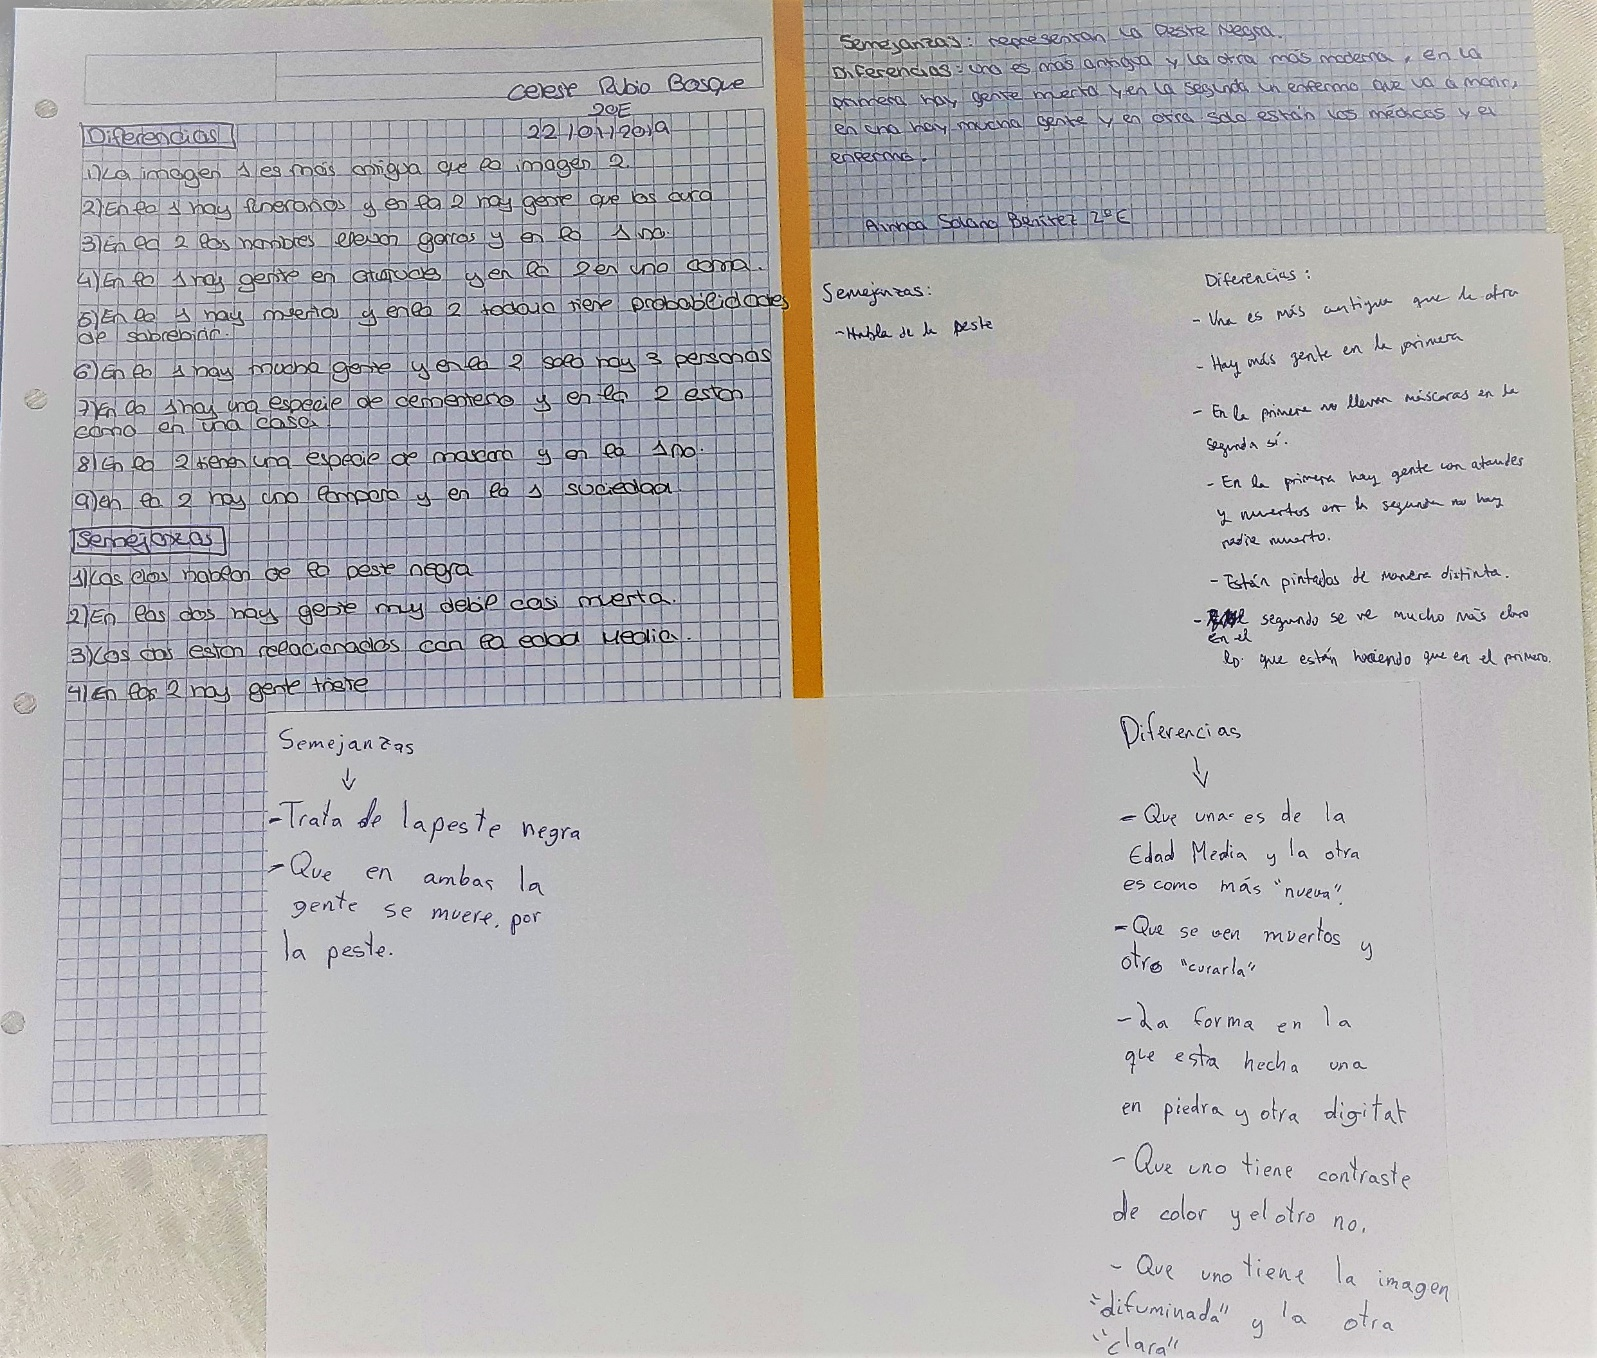 Celeste Rubio Bosque
2ºE
22/01/2019
Diferencias
1) La imagen 1 es más antigua que la imagen 2.
2) En la 1 hay funerarios y en la 2 hay gente que los cura
3) En la 2 los hombres llevan gorros y en la 1 no.
4) En la 1 hay gente en ataúdes y en la 2 en una cama.
5) En la 1 hay muertos y en la 2 todavía tiene probabilidades
de sobrebirir.
6) En la 1 hay mucha gente y en la 2 solo hay 3 personas
7) En la 1 hay una especie de cementerio y en la 2 están
como en una casa
8) En la 2 tienen una especie de máscara y en la 1 no.
9) en la 2 hay una lámpara y en la 1 suciedad.
Semejanzas
1) Las dos hablan de la peste negra
2) En las dos hay gente muy debil casi muerta.
3) Las dos están relacionados con la edad Media.
4) En las 2 hay gente triste
Semejanzas: representan la Peste Negra.
Diferencias: una es más antigua y la otra más moderna, en la
primera hay gente muerta y en la segunda un enfermo que va a morir,
en una hay mucha gente y en otra solo están los médicos y el
enfermo.
Ainhoa Solano Benítez 2ºE
Semejanzas:
- Habla de la peste
Diferencias:
- Una es más antigua que la otra
- Hay más gente en la primera
- En la primera no llevan máscaras en la
segunda sí.
- En la primera hay gente con ataudes
y muertos en la segunda no hay
nadie muerto.
- Están pintadas de manera distinta.
- En el segundo se ve mucho más claro
lo que están haciendo que en el primero.
Semejanzas
↓
- Trata de la peste negra
- Que en ambas la
gente se muere. por
la peste.
Diferencias
↓
- Que una es de la
Edad Media y la otra
es como más "nueva".
- Que se ven muertos y
otro "curarla"
- La forma en la
que esta hecha una
en piedra y otra digital
- Que uno tiene contraste
de color y el otro no.
- Que uno tiene la imagen
"difuminada" y la otra
"clara"